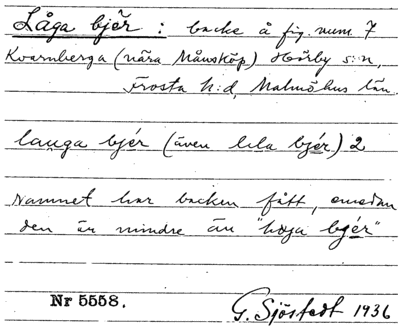 Låga bjër : backe å fig. num. 7
Kvarnberga (nära Månsköp) Hörby s:n,
Frosta h:d, Malmöhus län.
lauga bjér (även lila bjér) 2
Namnet har backen fått, emedan
den är mindre än "höga bjér"
Nr 5558.
G. Sjöstedt 1936